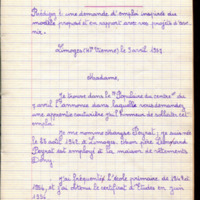 Rédigez : une demande d'emploi inspirée du
modèle proposé et en rapport avec vos projets d'ave-
nir.
Limoges (Hte Vienne) le 3 avril
Madame,
Je trouve dans le "Populaire du centre" du
avril l'annonce dans laquelle vous demandez
une apprentie couturière j'ai l'honneur de solliciter cet
emploi.
Je me nomme Peyrat ; je suis née
le à Limoges. Mon père
Peyrat est employé à la maison de vêtements
J'ai fréquenté l'école primaire de
, et j'ai obtenu le certificat d'études en juin